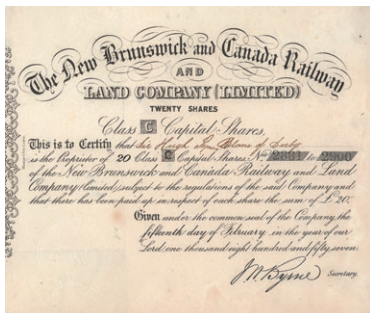 The New Brunswick and Canada Railway
AND
LAND COMPANY (LIMITED)
TWENTY SHARES
Class C Capital Shares.
This is to Certify that Sir Hugh
is the Proprietor of 20 Class C Capital Shares Nos 2881 to 2900
of the New Brunswick and Canada Railway and Land
Company (Limited) subject to the regulations of the said Company and
that there has been paid up in respect of each share the sum of £20.
Given under the common seal of the Company the
fifteenth day of February in the year of our
Lord one thousand eight hundred and fifty seven.
J W Byrne Secretary.